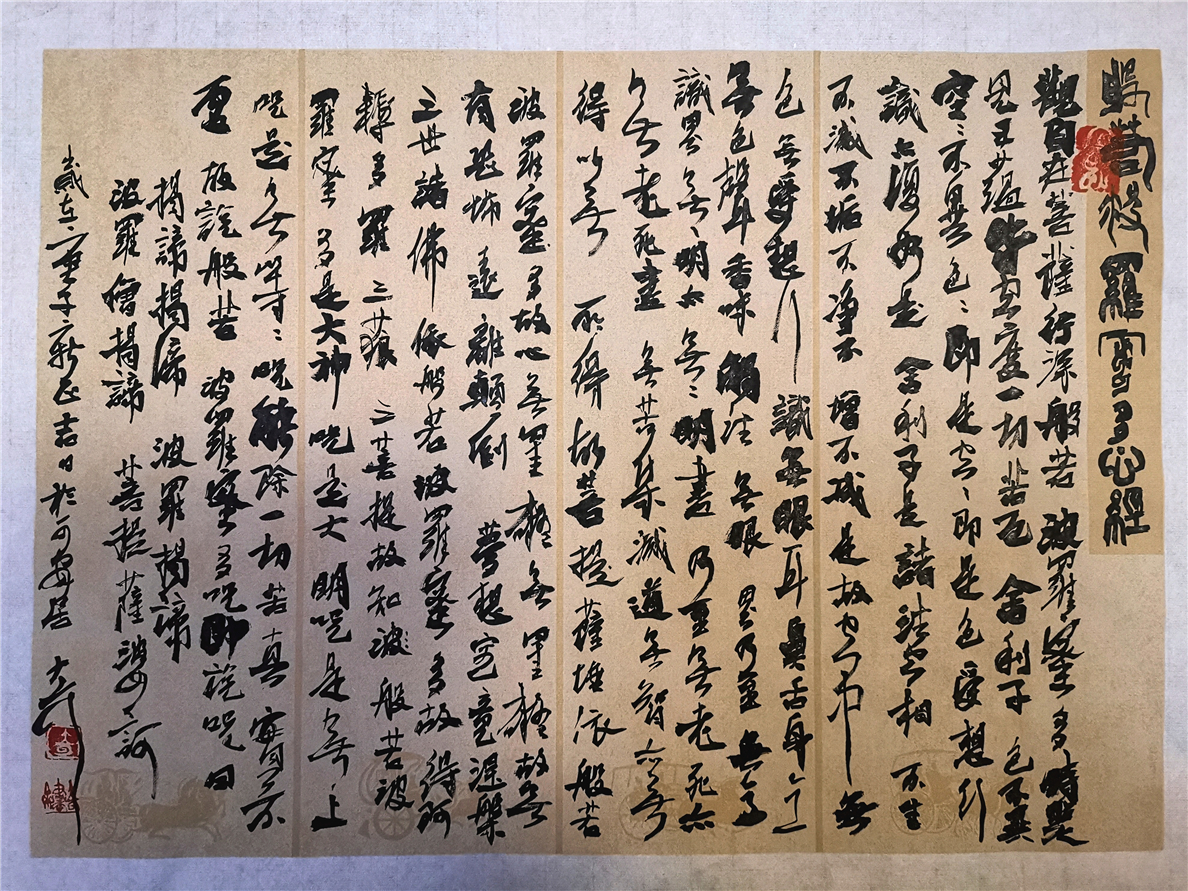 般若波羅蜜多心經
觀自在菩薩行深般若波羅蜜多時照
見五蘊皆空度一切苦厄舍利子色不異
空〻不異色〻即是空〻即是色受想行
識亦復如是舍利子是諸法空相不生
不滅不垢不淨不增不減是故空中無
色無受想行識無眼耳鼻舌身意
無色聲香味觸法無眼界乃至無意
識界無〻明亦無〻明盡乃至無老死亦
無老死盡無苦集滅道無智亦無
得以無所得故菩提薩埵依般若
波羅蜜多故心無罣礙無罣礙故無
有恐怖遠離顛倒夢想究竟涅槃
三世諸佛依般若波羅蜜多故得阿
耨多羅三藐三菩提故知波般若波
羅蜜多是大神咒是大明咒是無上
咒是無等〻咒能除一切苦真實不
虛故說般若波羅蜜多咒即說咒曰
揭諦揭諦波羅揭諦
波羅僧揭諦菩提薩婆訶
歲在庚子新正吉日於可安居